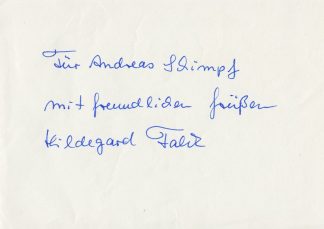 Für Andreas Schimpf
mit freundlichen Grüßen
Hildegard Falck